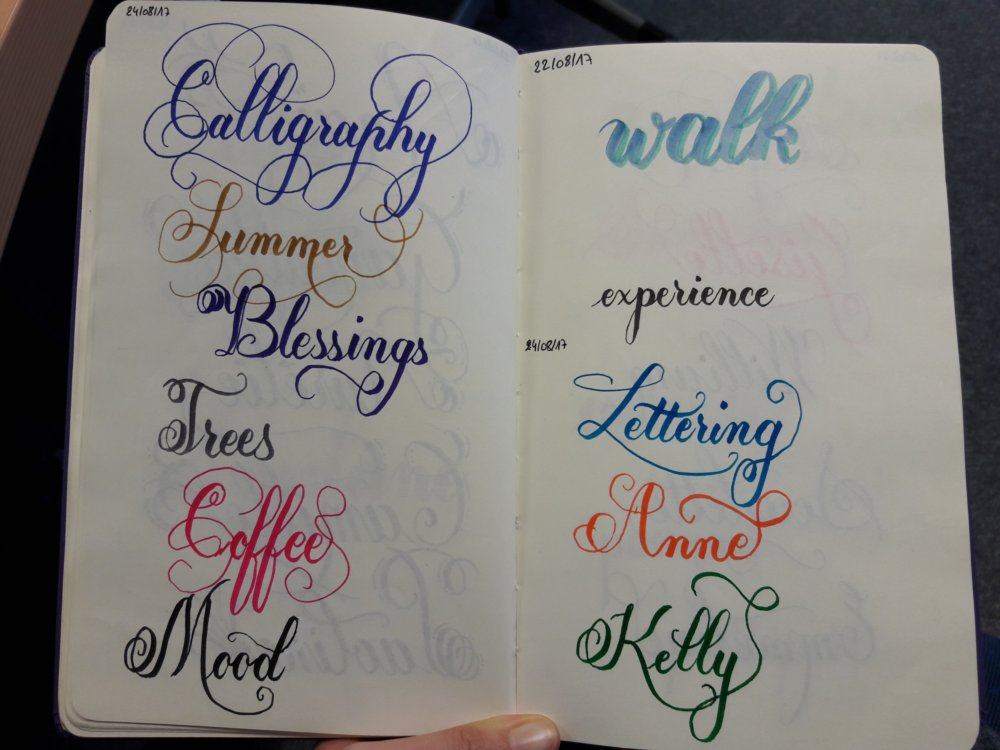 24/08/17
Calligraphy
Summer
Blessings
Trees
Coffee
Mood
22/08/17
walk
experience
24/08/17
Lettering
Anne
Kelly